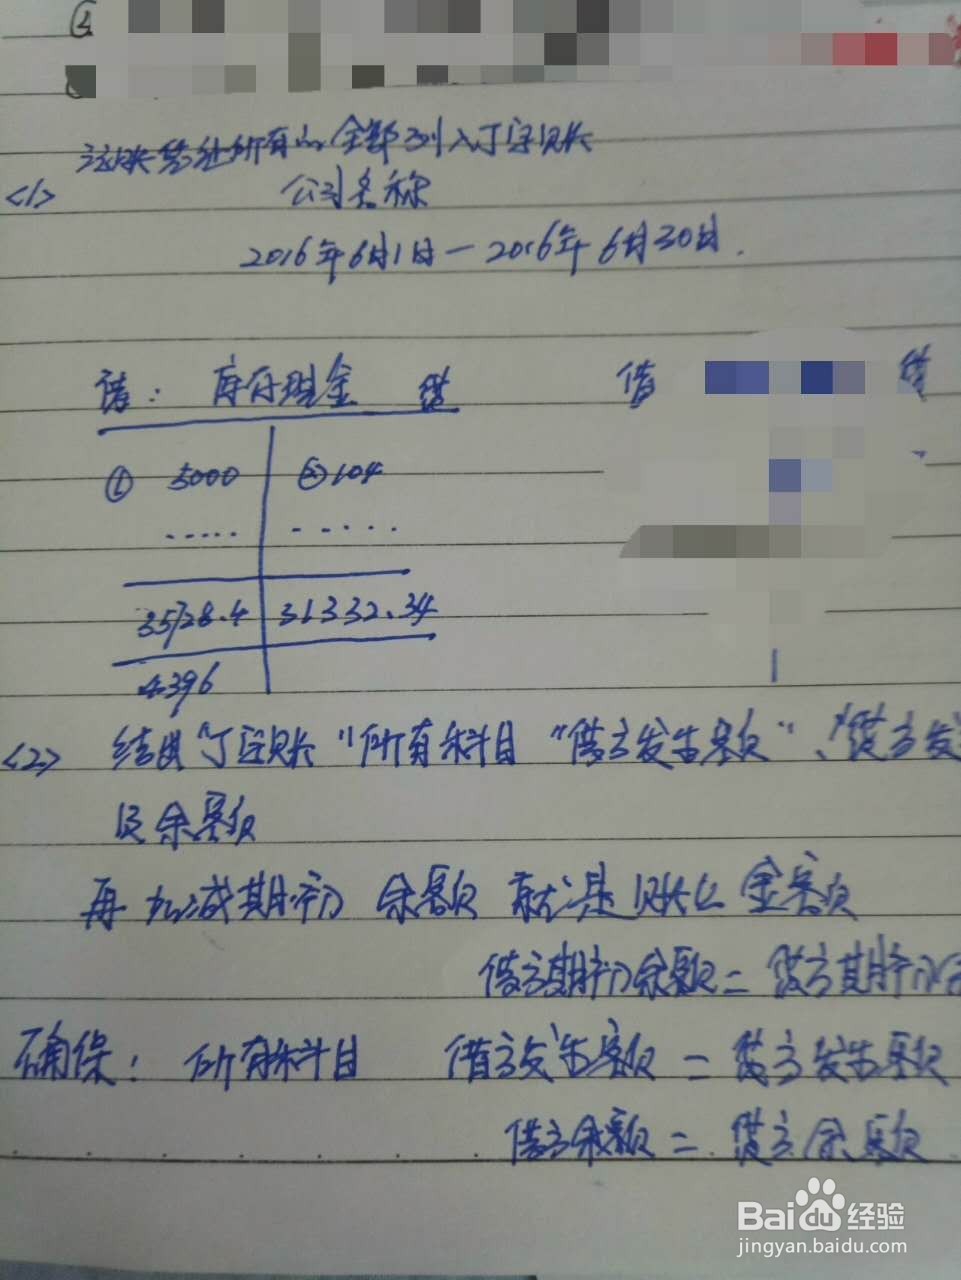 ②
全部列入丁字账
<1> 公司名称
2016年6月1日—2016年6月30日.
借: 库存现金 贷 借 贷
① 5000 ②104
..... .....
35728.4 31332.34
4396
<2> 结出“丁字账”所有科目“借方发生额”、“贷方发
及余额
再加减期初余额就是账上金额
借方期初余额=贷方期初余
确保: 所有科目 借方发生额=贷方发生额
借方余额=贷方余额
Baidu经验
jingyan.baidu.com